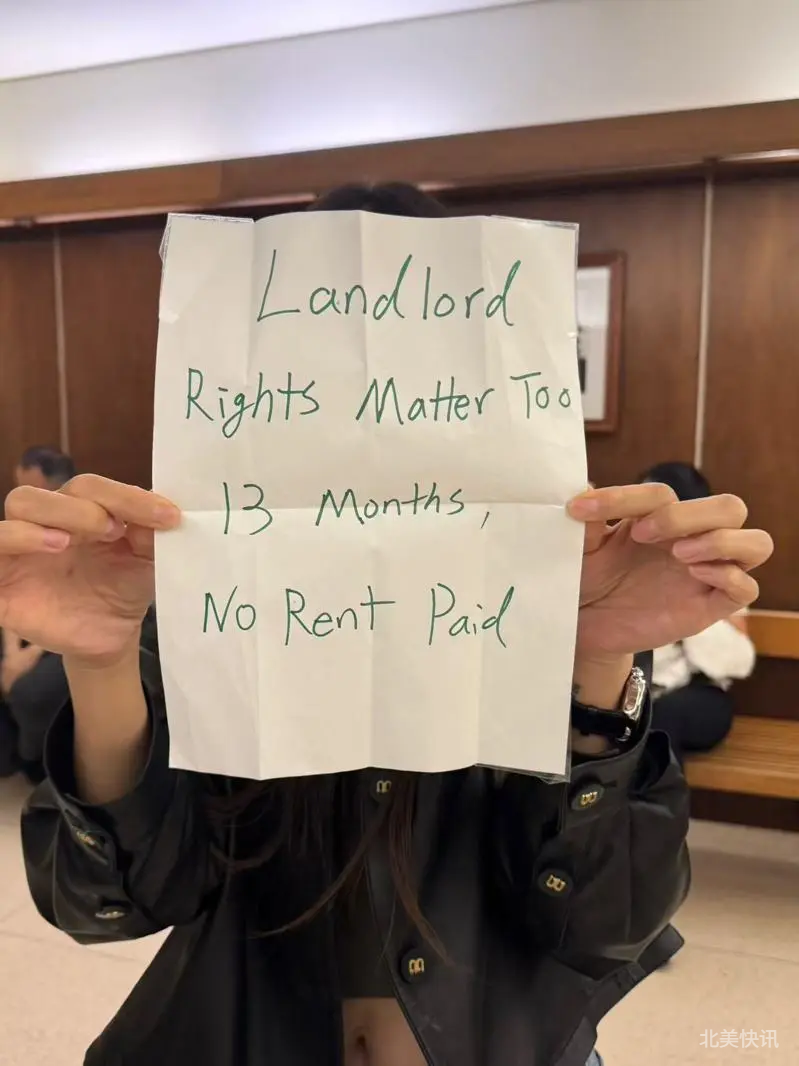 Landlord
Rights Matter Too
13 Months,
No Rent Paid
北美快讯